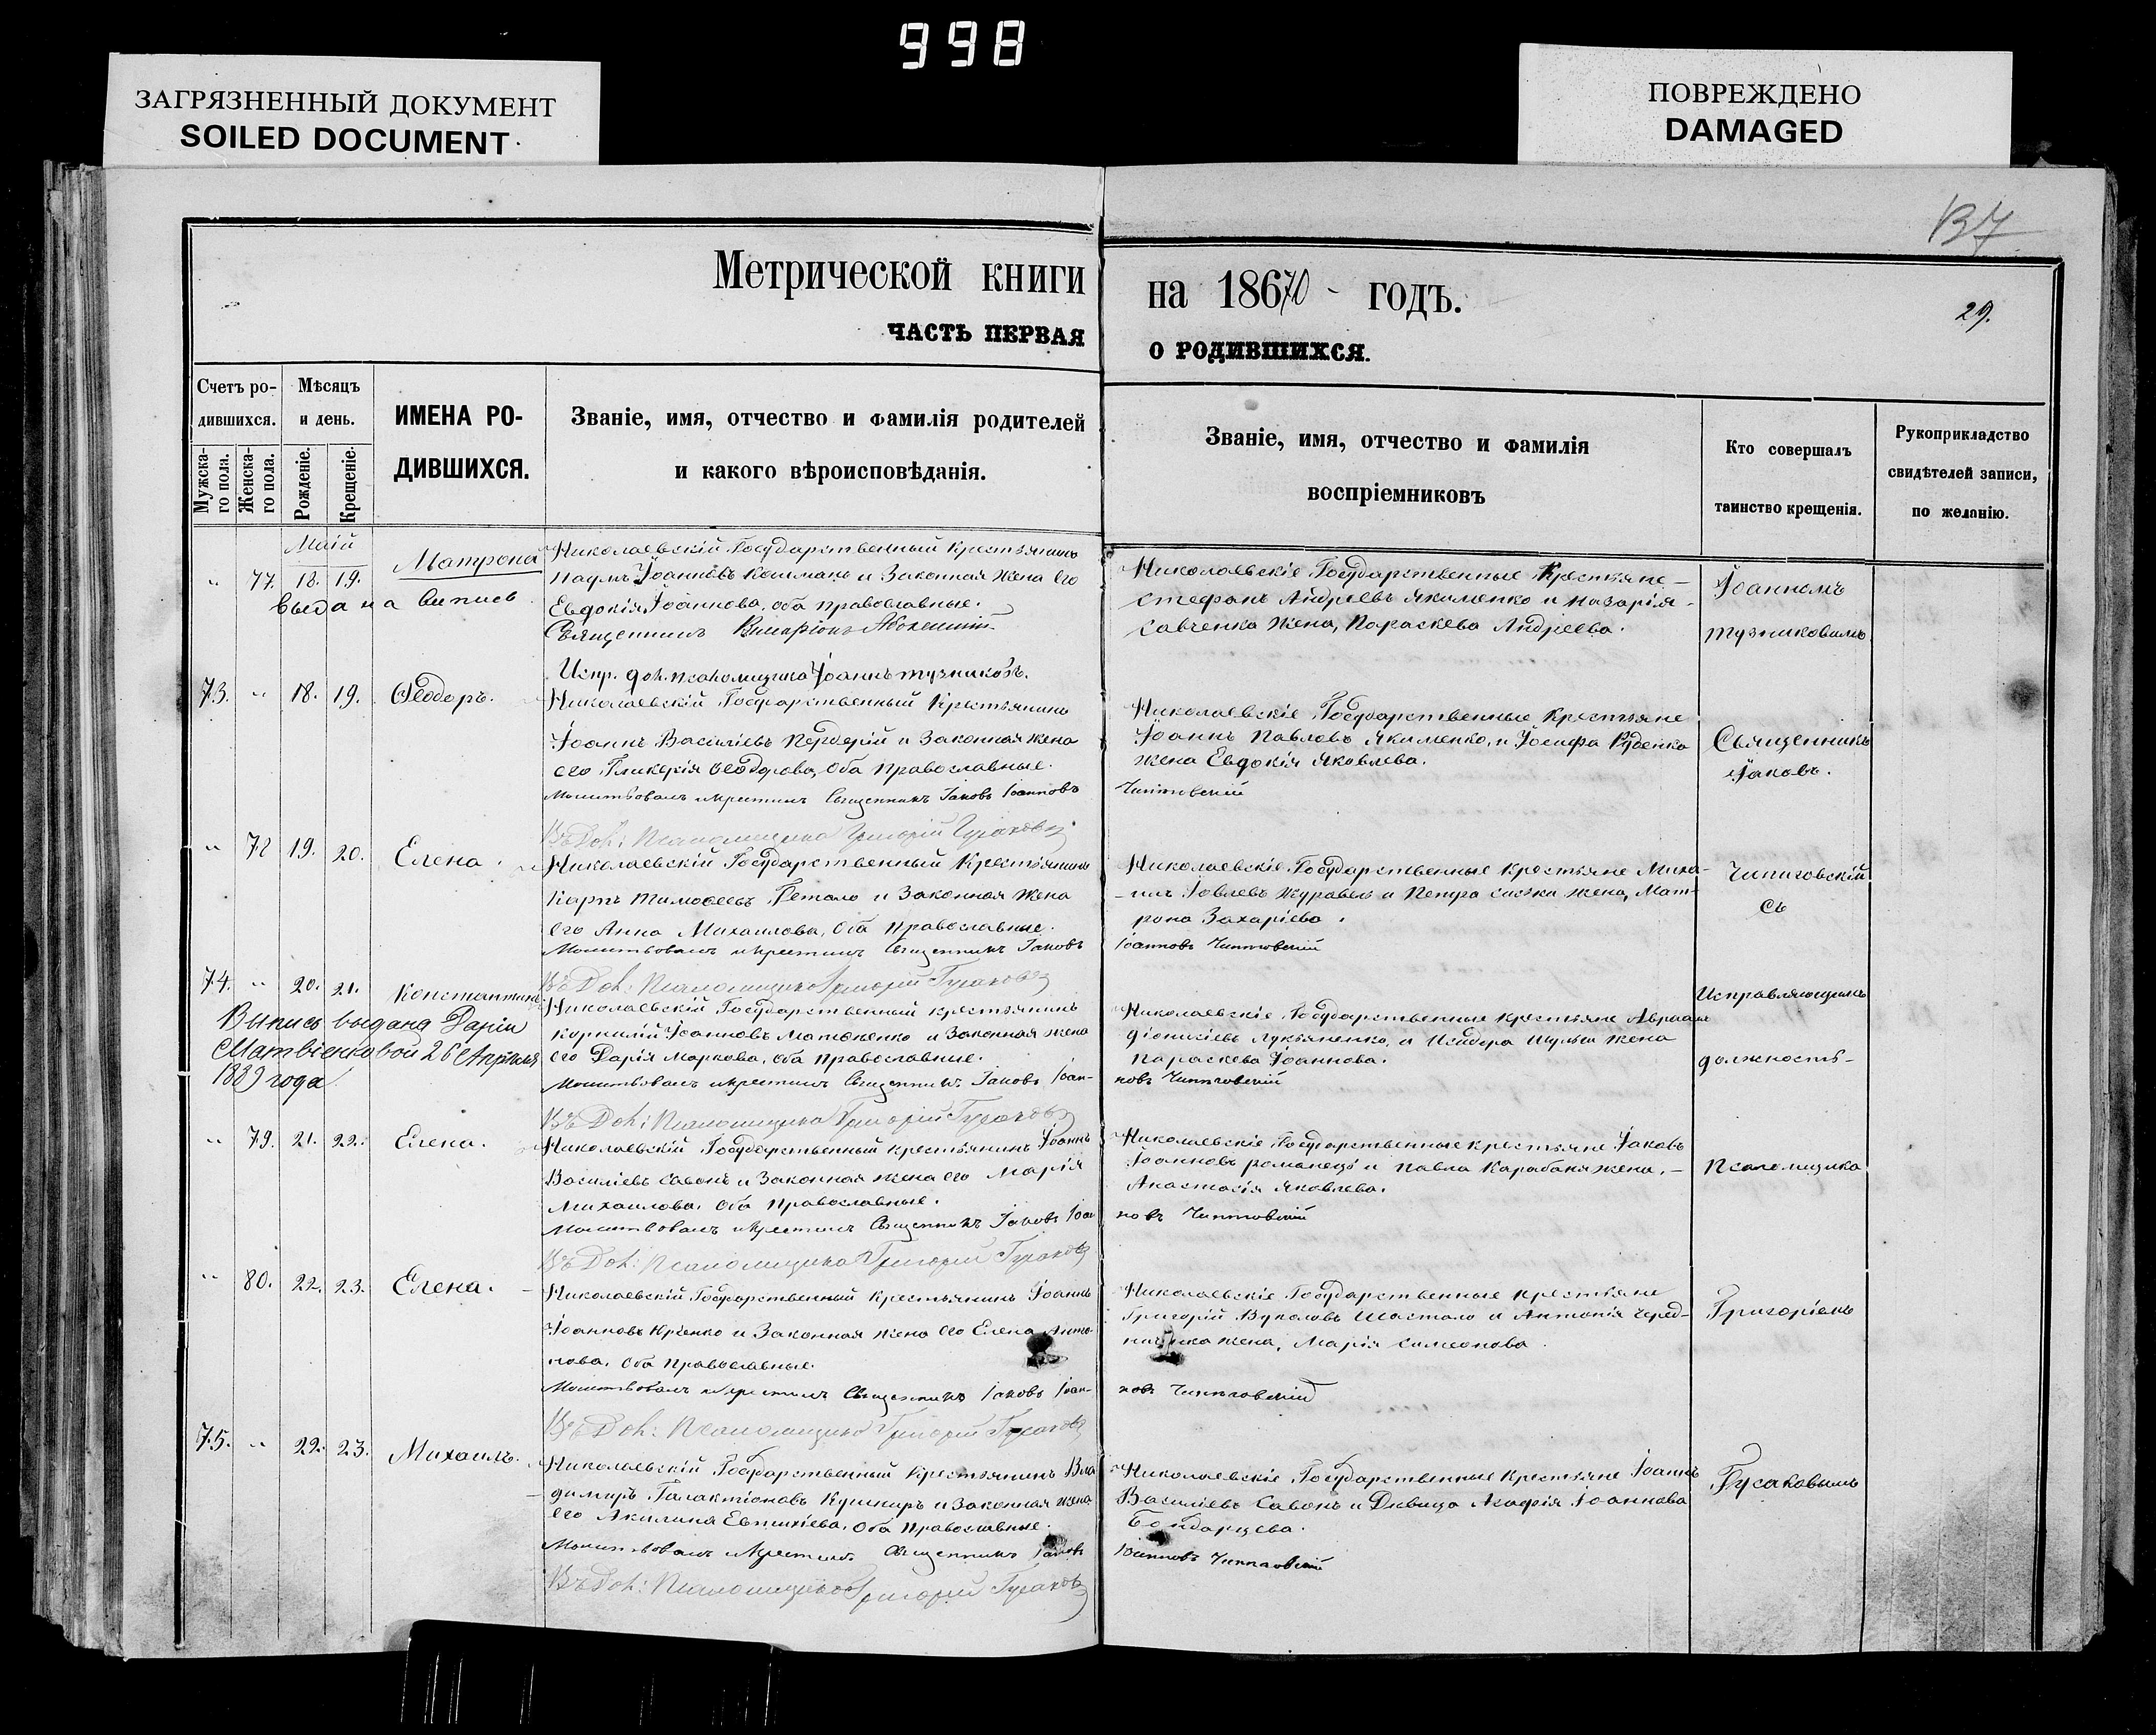 998
ЗАГРЯЗНЕННЫЙ ДОКУМЕНТ
SOILED DOCUMENT
ПОВРЕЖДЕНО
DAMAGED
137
Метрической книги
на 1870 годъ.
29.
ЧАСТЬ ПЕРВАЯ
О РОДИВШИХСЯ.
Счетъ ро-
дившихся.
Мужска-
го пола.
Женска-
го пола.
Мѣсяцъ
и день.
Рожденіе.
Крещеніе.
ИМЕНА РО-
ДИВШИХСЯ.
Званіе, имя, отчество и фамилія родителей
и какого вѣроисповѣданія.
Званіе, имя, отчество и фамилія
воспріемниковъ
Кто совершалъ
таинство крещенія.
Рукоприкладство
свидѣтелей записи,
по желанію.
Маій
" 77. 18. 19. Матрона
Выдана випись
Николаевскій Государственный Крестьянинъ
Наумъ Іоанновъ и Законная Жена его
Евдокія Іоаннова, оба православные.
Священникъ
Испр. дол. псаломщика Іоаннъ Тузниковъ.
Николаевскіе Государственные Крестьяне
Стефанъ Андреевъ Якименко и Назарія
Савченка жена, Параскева Андреева.
Іоанномъ
Тузниковымъ
73. " 18. 19. Ѳеодоръ.
Николаевскій Государственный Крестьянинъ
Іоаннъ Василіевъ и Законная жена
его Гликерія Ѳеодорова, Оба Православные.
Молитвовалъ и крестилъ Священникъ Іаковъ Іоанновъ
Въ Дол: Псаломщика Григорій Гусаковъ
Николаевскіе Государственные Крестьяне
Іоаннъ Павловъ Якименко, и Іосифа Руденка
жена Евдокія Яковлева.
Чипиговскій
Священникъ
Іаковъ.
" 78 19. 20. Елена.
Николаевскій Государственный Крестьянинъ
Карпъ Тимоѳеевъ и Законная Жена
его Анна Михаилова, Оба Православные.
Молитвовалъ и крестилъ Священникъ Іаковъ
Въ Дол: Псаломщика Григорій Гусаковъ
Николаевскіе Государственные Крестьяне Миха-
илъ Іовлевъ Журавель и Петра жена, Мат-
рона Захаріева.
Іоанновъ Чипиговскій
Чипиговскій
Съ
74. " 20. 21. Константинъ
Выпись выдана Даріи
Матвіенковой 26 Апрѣля
1889 года
Николаевскій Государственный крестьянинъ
Корнилій Іоанновъ и Законная жена
его Дарія Маркова, оба православные.
Молитвовалъ и крестилъ Священникъ Іаковъ Іоан-
Въ Дол: Псаломщика Григорій Гусаковъ
Николаевскіе Государственные крестьяне Авраамъ
Діонисіевъ Лукьяненко, и Исидора Шульги жена
Параскева Іоаннова.
новъ Чипиговскій
Исправляющимъ
должность
" 79. 21. 22. Елена.
Николаевскій Государственный крестьянинъ Іоаннъ
Василіевъ Савонъ и Законная жена его Марія
Михаилова, оба православные.
Молитвовалъ и крестилъ Священникъ Іаковъ Іоан
Въ Дол: Псаломщика Григорій Гусаковъ
Николаевскіе Государственные крестьяне Іаковъ
Іоанновъ Романецъ и Павла Карабаня жена,
Анастасія Яковлева.
новъ Чипиговскій
Псаломщика
" 80. 22. 23. Елена.
Николаевскій Государственный крестьянинъ Іоаннъ
Іоанновъ Юрченко и Законная жена его Елена Анто-
нова, оба православные.
Молитвовалъ и крестилъ Священникъ Іаковъ Іоан-
Въ Дол: Псаломщика Григорій Гусаковъ
Николаевскіе Государственные крестьяне
Григорій Вуколовъ Шаетало и Антонія Черед-
жена, Марія Симеонова.
новъ Чипиговскій
Григоріемъ
75. " 22. 23. Михаилъ.
Николаевскій Государственный Крестьянинъ Вла
димиръ Галактіоновъ Кушниръ и Законная жена
его Акилина Евтихіева, Оба православные.
Молитвовалъ и крестилъ Священникъ Іаковъ
Въ Дол: Псаломщика Григорій Гусаковъ
Николаевскіе Государственные Крестьяне Іоаннъ
Василіевъ Савонъ и Дѣвица Агафія Іоаннова
Бондарцева.
Іоанновъ Чипиговскій
Гусаковымъ